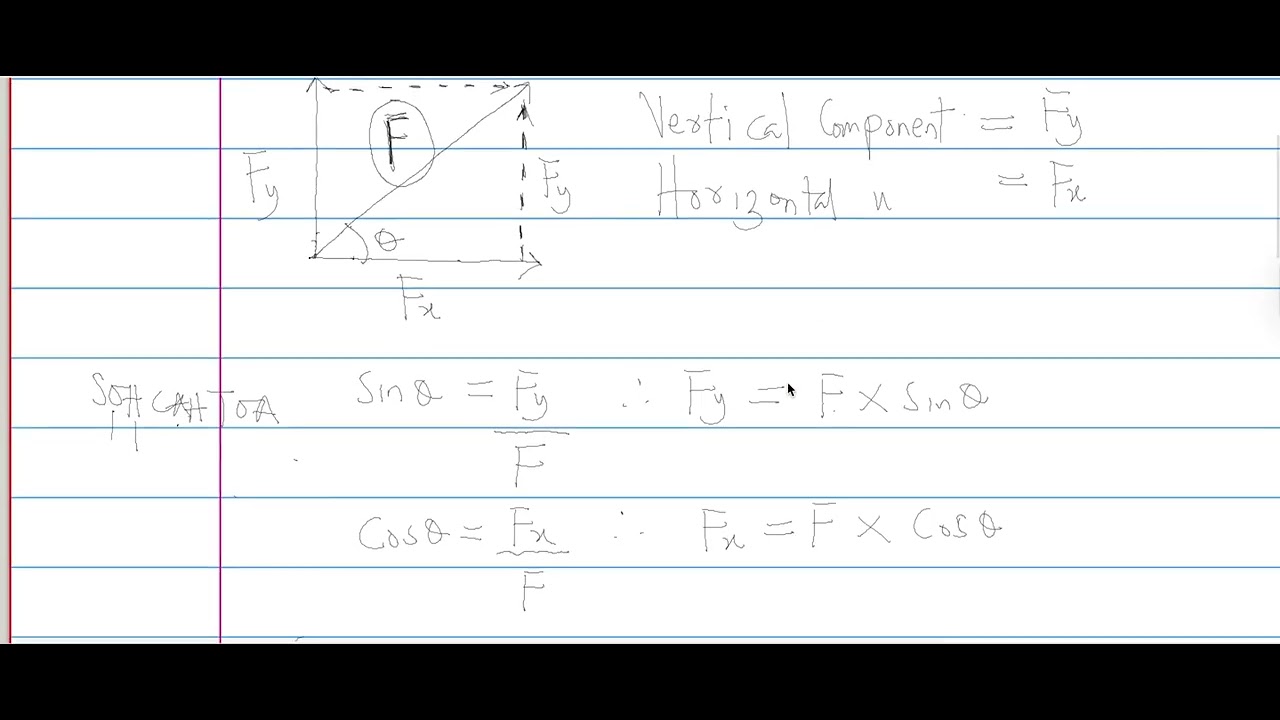 F
Vertical Component = Fy
Fy
Fy
Horizontal " = Fx
θ
Fx
SOH CAH TOA
Sinθ = Fy / F ∴ Fy = F × Sinθ
Cosθ = Fx / F ∴ Fx = F × Cosθ